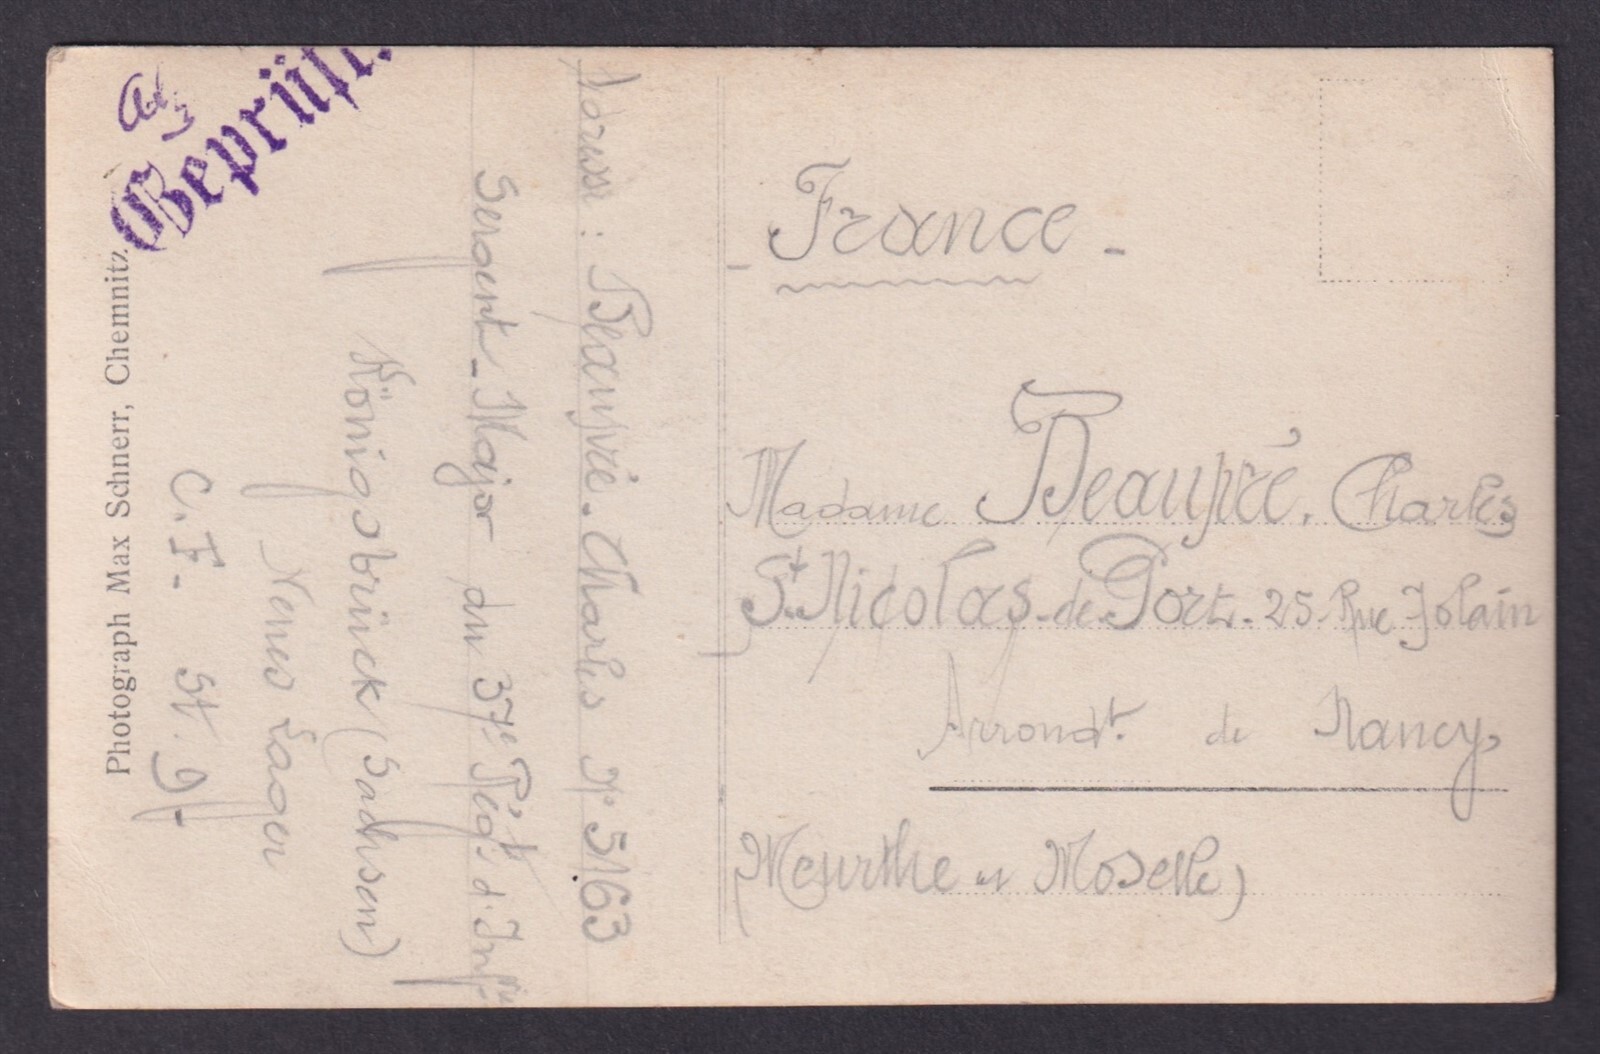 Geprüft.
Photograph Max Schnerr, Chemnitz.
Adresse : Beaupré. Charles N° 5163
Sergent-Major du 37e Rég.t d'Inf.rie
Königsbrück (Sachsen)
Neues Lager
C.F. St. 9-
- France -
Madame Beaupré. Charles
St Nicolas-de-Port. 25 Rue Jolain
Arrondt. de Nancy
(Meurthe et Moselle)